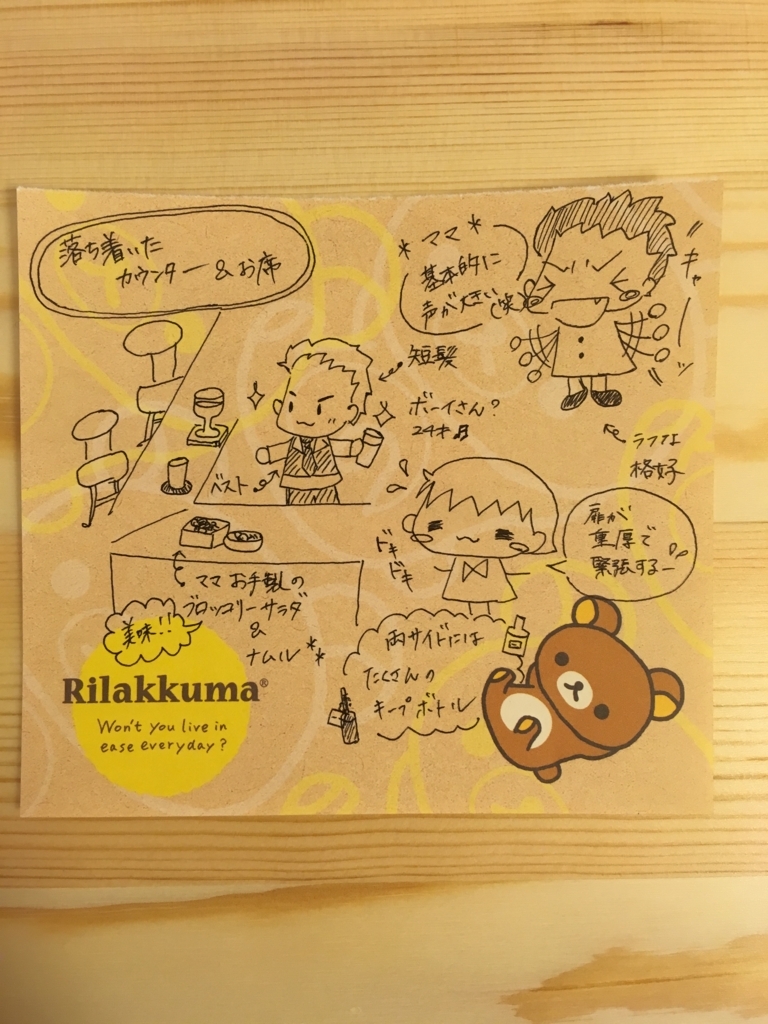 落ち着いた
カウンター &お席
* ママ *
基本的に
声が大きい(笑)
キャーーッ
短髪
ボーイさん?
24才♬
ラフな
格好
ベスト
ドキ
ドキ
扉が
重厚で
緊張するー
ママ お手製の
ブロッコリーサラダ
&
ナムル **
美味!!
両サイドには
たくさんの
キープボトル
Rilakkuma®
Won't you live in
ease everyday?